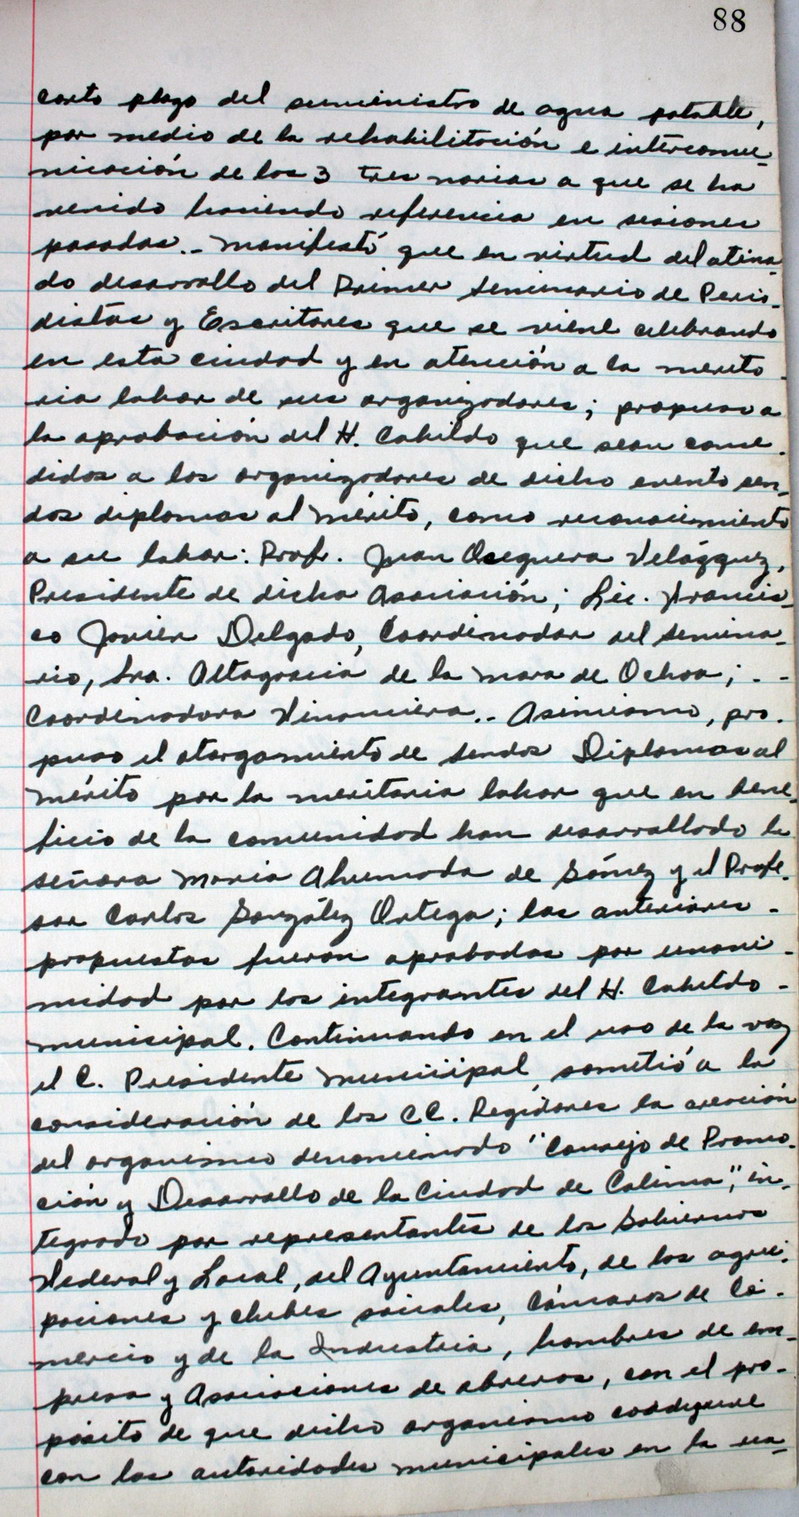 88
corto plazo del suministro de agua potable,
por medio de la rehabilitación e intercomu-
nicación de los 3 tres norias a que se ha
venido haciendo referencia en sesiones
pasadas.- Manifestó que en virtud del atina-
do desarrollo del Primer Seminario de Perio-
distas y Escritores que se viene celebrando
en esta ciudad y en atención a la merito-
ria labor de sus organizadores; propuso a
la aprobación del H. Cabildo que sean conce-
didos a los organizadores de dicho evento sen-
dos diplomas al mérito, como reconocimiento
a su labor: Profr. Juan Oseguera Velázquez,
Presidente de dicha Asociación; Lic. Francis-
co Javier Delgado, Coordinador del Semina-
rio, Sra. Altagracia de la Mora de Ochoa; - -
Coordinadora Financiera.- Asimismo, pro-
puso el otorgamiento de sendos Diplomas al
mérito por la meritoria labor que en bene-
ficio de la comunidad han desarrollado la
señora María Ahumada de Gómez y el Profe-
sor Carlos González Ortega; las anteriores -
propuestas fueron aprobadas por unani-
midad por los integrantes del H. Cabildo -
Municipal. Continuando en el uso de la voz
el C. Presidente Municipal, sometió a la
consideración de los CC. Regidores la creación
del organismo denominado "Consejo de Promo-
ción y Desarrollo de la Ciudad de Colima", in-
tegrado por representantes de los Gobiernos
Federal y Local, del Ayuntamiento, de las agru-
paciones y clubes sociales, Cámaras de Co-
mercio y de la Industria, hombres de em-
presa y Asociaciones de obreros, con el pro-
pósito de que dicho organismo coadyuve
con las autoridades municipales en la rea-